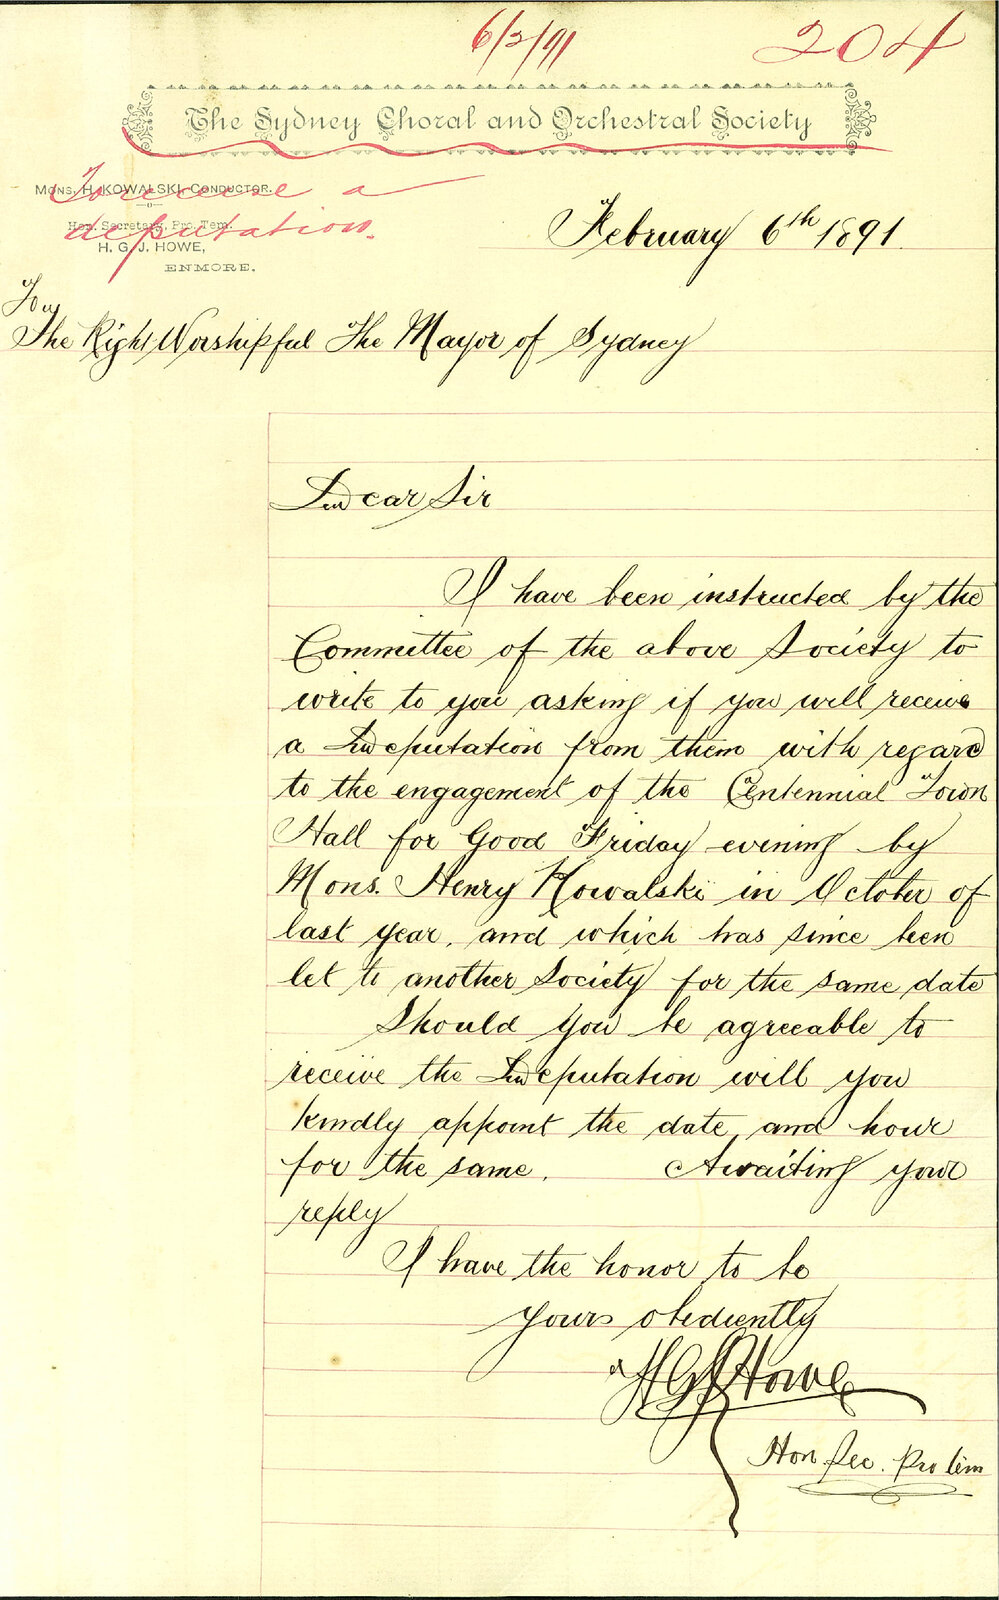 6/2/91
204
The Sydney Choral and Orchestral Society
Mons. H. KOWALSKI, Conductor.
To receive a
Hon. Secretary, Pro. Tem.
deputation.
H. G. J. HOWE,
ENMORE.
February 6th 1891.
To
The Right Worshipful The Mayor of Sydney
Dear Sir
I have been instructed by the
Committee of the above Society to
write to you asking if you will receive
a Deputation from them with regard
to the engagement of the Centennial Town
Hall for Good Friday evening by
Mons. Henry Kowalski in October of
last year, and which has since been
let to another Society for the same date
Should you be agreeable to
receive the Deputation will you
kindly appoint the date and hour
for the same. Awaiting your
reply
I have the honor to be
yours obediently
H G J Howe
Hon Sec. Pro tem